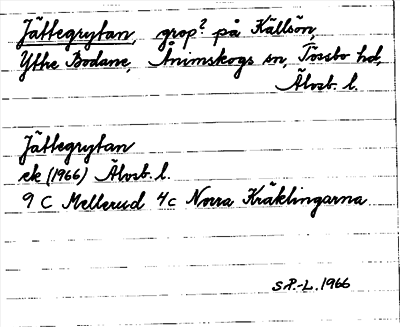 Jättegrytan, grop? på Källsön,
Yttre Bodane, Ånimskogs sn, Tössbo hd,
Älvsb. l.
Jättegrytan
ek (1966) Älvsb. l.
9 C Mellerud 4c Norra Kräklingarna
S.P.-L. 1966